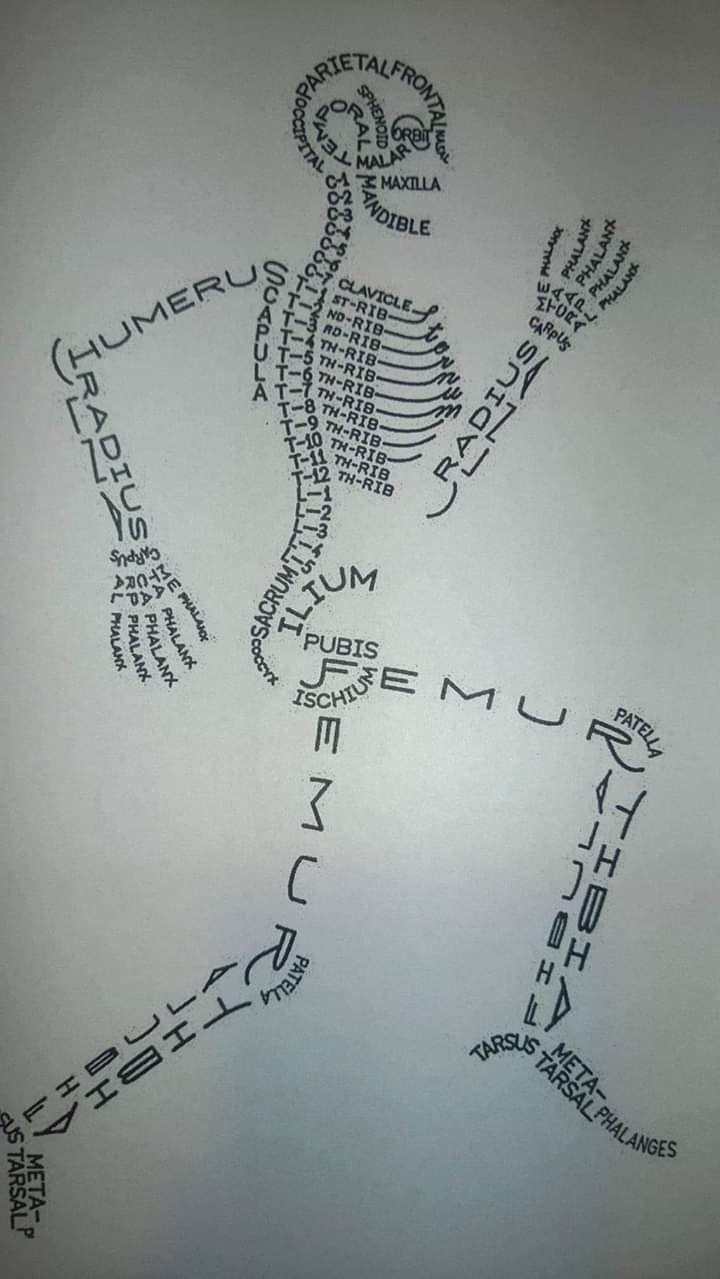 PARIETAL
FRONTAL
OCCIPITAL
TEMPORAL
SPHENOID
ORBIT
NASAL
MALAR
MAXILLA
MANDIBLE
C-1
C-2
C-3
C-4
C-5
C-6
C-7
CLAVICLE
T-1 ST-RIB
T-2 ND-RIB
T-3 RD-RIB
T-4 TH-RIB
T-5 TH-RIB
T-6 TH-RIB
T-7 TH-RIB
T-8 TH-RIB
T-9 TH-RIB
T-10 TH-RIB
T-11 TH-RIB
T-12 TH-RIB
Sternum
L-1
L-2
L-3
L-4
L-5
SCAPULA
HUMERUS
RADIUS
ULNA
CARPUS
META
CARPAL
PHALANX
PHALANX
PHALANX
PHALANX
PHALANX
RADIUS
ULNA
CARPUS
META
CARPAL
PHALANX
PHALANX
PHALANX
PHALANX
PHALANX
SACRUM
COCCYX
ILIUM
PUBIS
ISCHIUM
FEMUR
PATELLA
TIBIA
FIBULA
TARSUS
META-
TARSAL
PHALANGES
FEMUR
PATELLA
TIBIA
FIBULA
SUS
META-
TARSAL
P